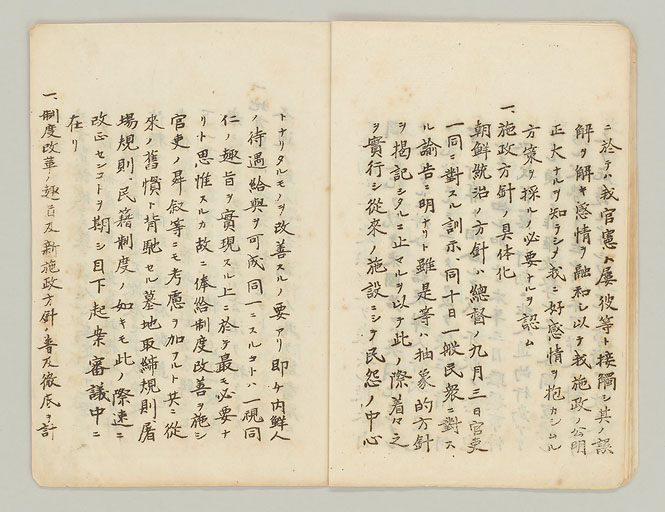 ニ於テハ我官憲ハ屢彼等ト接觸シ其ノ誤
解ヲ解キ感情ヲ融和シ以テ我施政ノ公明
正大ナルヲ知ラシメ我ニ好感情ヲ抱カシムル
方策ヲ採ルノ必要ナルヲ認ム
一、施政方針ノ具体化
朝鮮統治ノ方針ハ總督ノ九月三日官吏
一同ニ對スル訓示、同十日一般民衆ニ對ス
ル諭告ニ明ナリト雖是等ハ抽象的方針
ヲ揭記シタルニ止マルヲ以テ此ノ際着々之
ヲ實行シ從來ノ施設ニシテ民怨ノ中心
トナリタルモノヲ改善スルノ要アリ即チ内鮮人
ノ待遇給與ヲ可成同一ニスルコトハ一視同
仁ノ趣旨ヲ實現スル上ニ於テ最モ必要ナ
リト思惟スルカ故ニ俸給制度改善ヲ施シ
官吏ノ昇敘等ニモ考慮ヲ加フルト共ニ從
來ノ舊慣ト背馳セル墓地取締規則屠
場規則民籍制度ノ如キモ此ノ際速ニ
改正センコトヲ期シ目下起案審議中ニ
在リ
一、制度改革ノ趣旨及新施政方針ノ普及徹底ヲ計